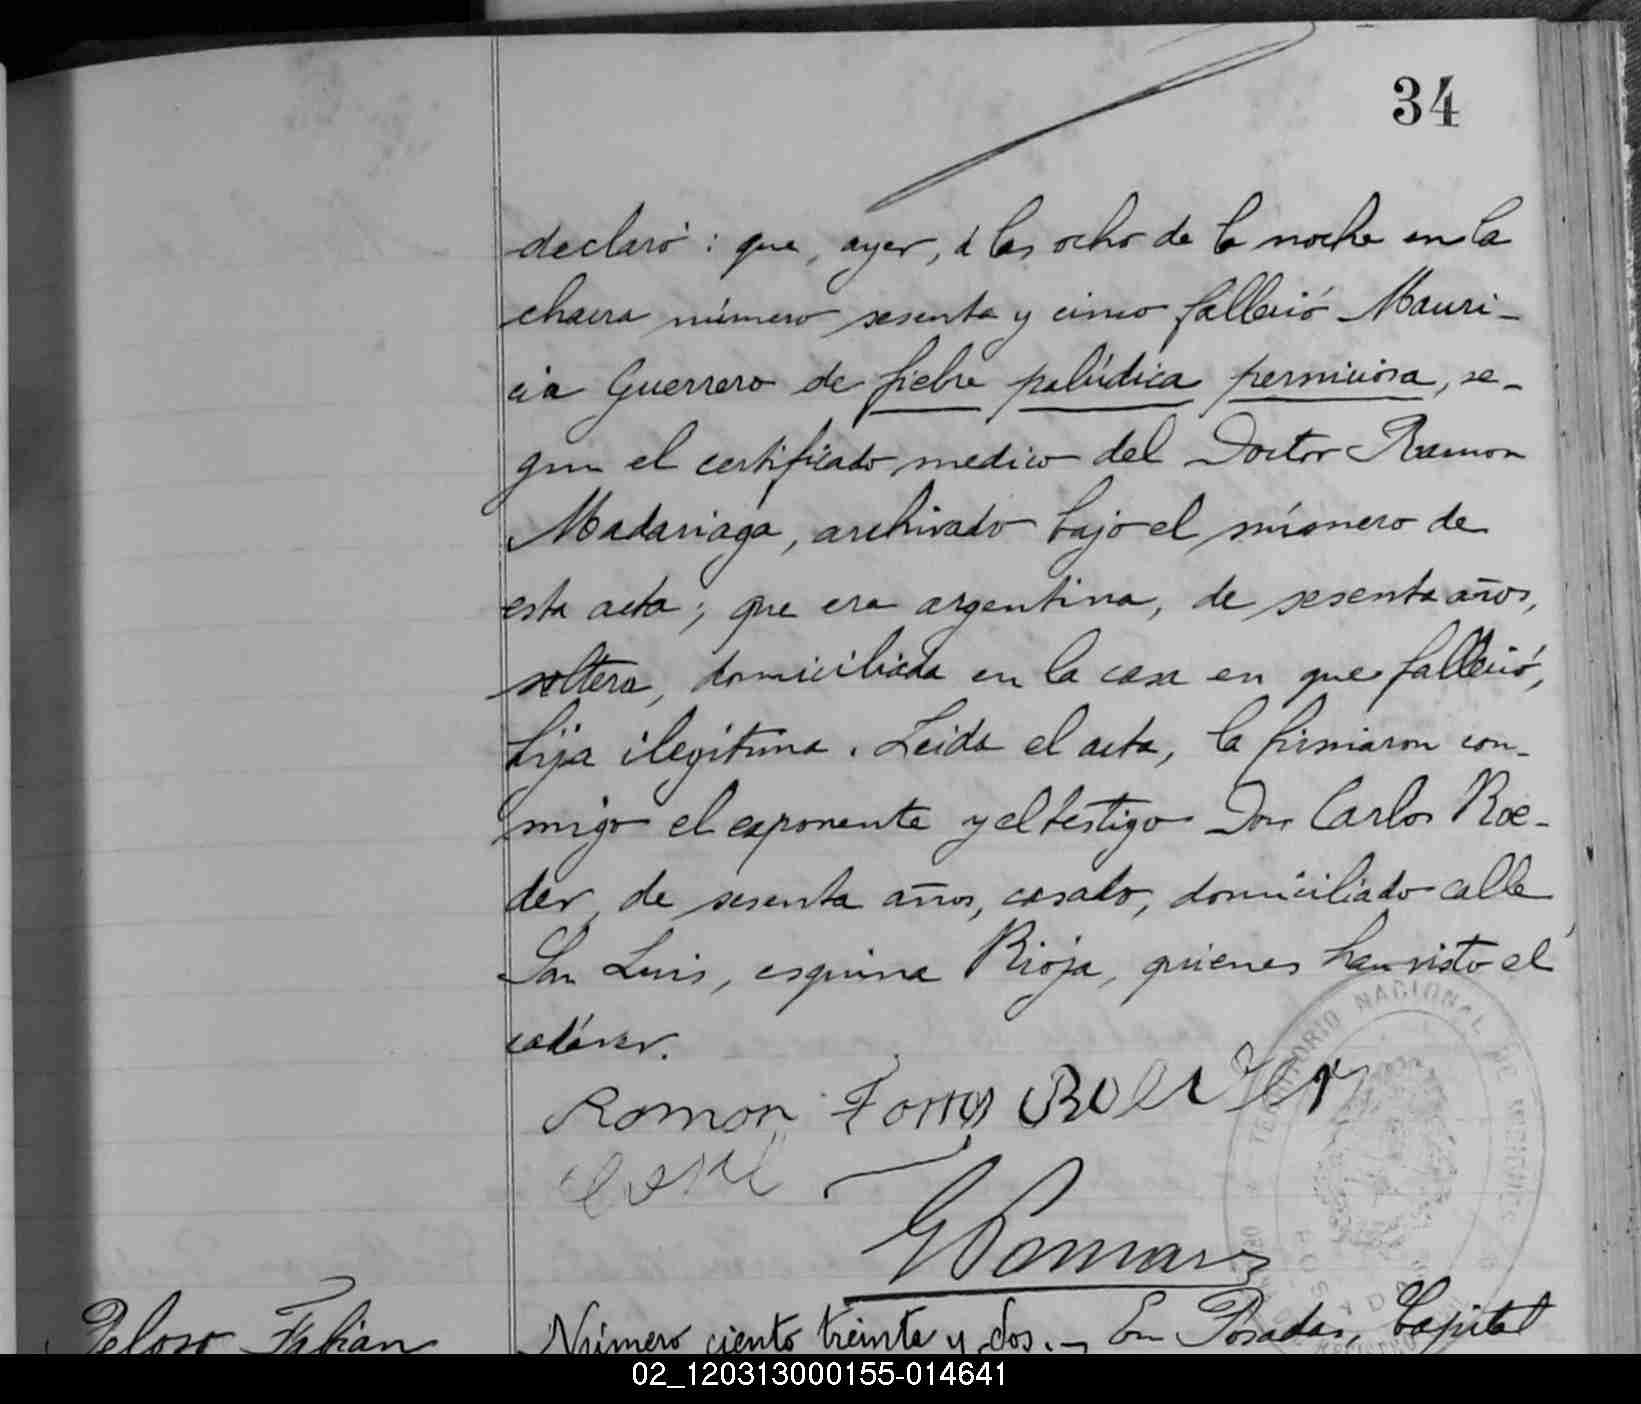 34
declaró: que, ayer, á las ocho de la noche en la
chacra número sesenta y cinco falleció Mauri-
cia Guerrero de fiebre palúdica perniciosa, se-
gun el certificado medico del Doctor Ramon
Madariaga, archivado bajo el número de
esta acta; que era argentina, de sesenta años,
soltera, domiciliada en la casa en que falleció,
hija ilegítima. Leida el acta, la firmaron con-
migo el exponente y el testigo Don Carlos Roe-
der, de sesenta años, casado, domiciliado calle
San Luis, esquina Rioja, quienes han visto el
cadáver.
Ramon Torres Roeder
TERRITORIO NACIONAL DE MISIONES
POSADAS
Peloso Fabian
Número ciento treinta y dos.- En Posadas, Capital
02_120313000155-014641